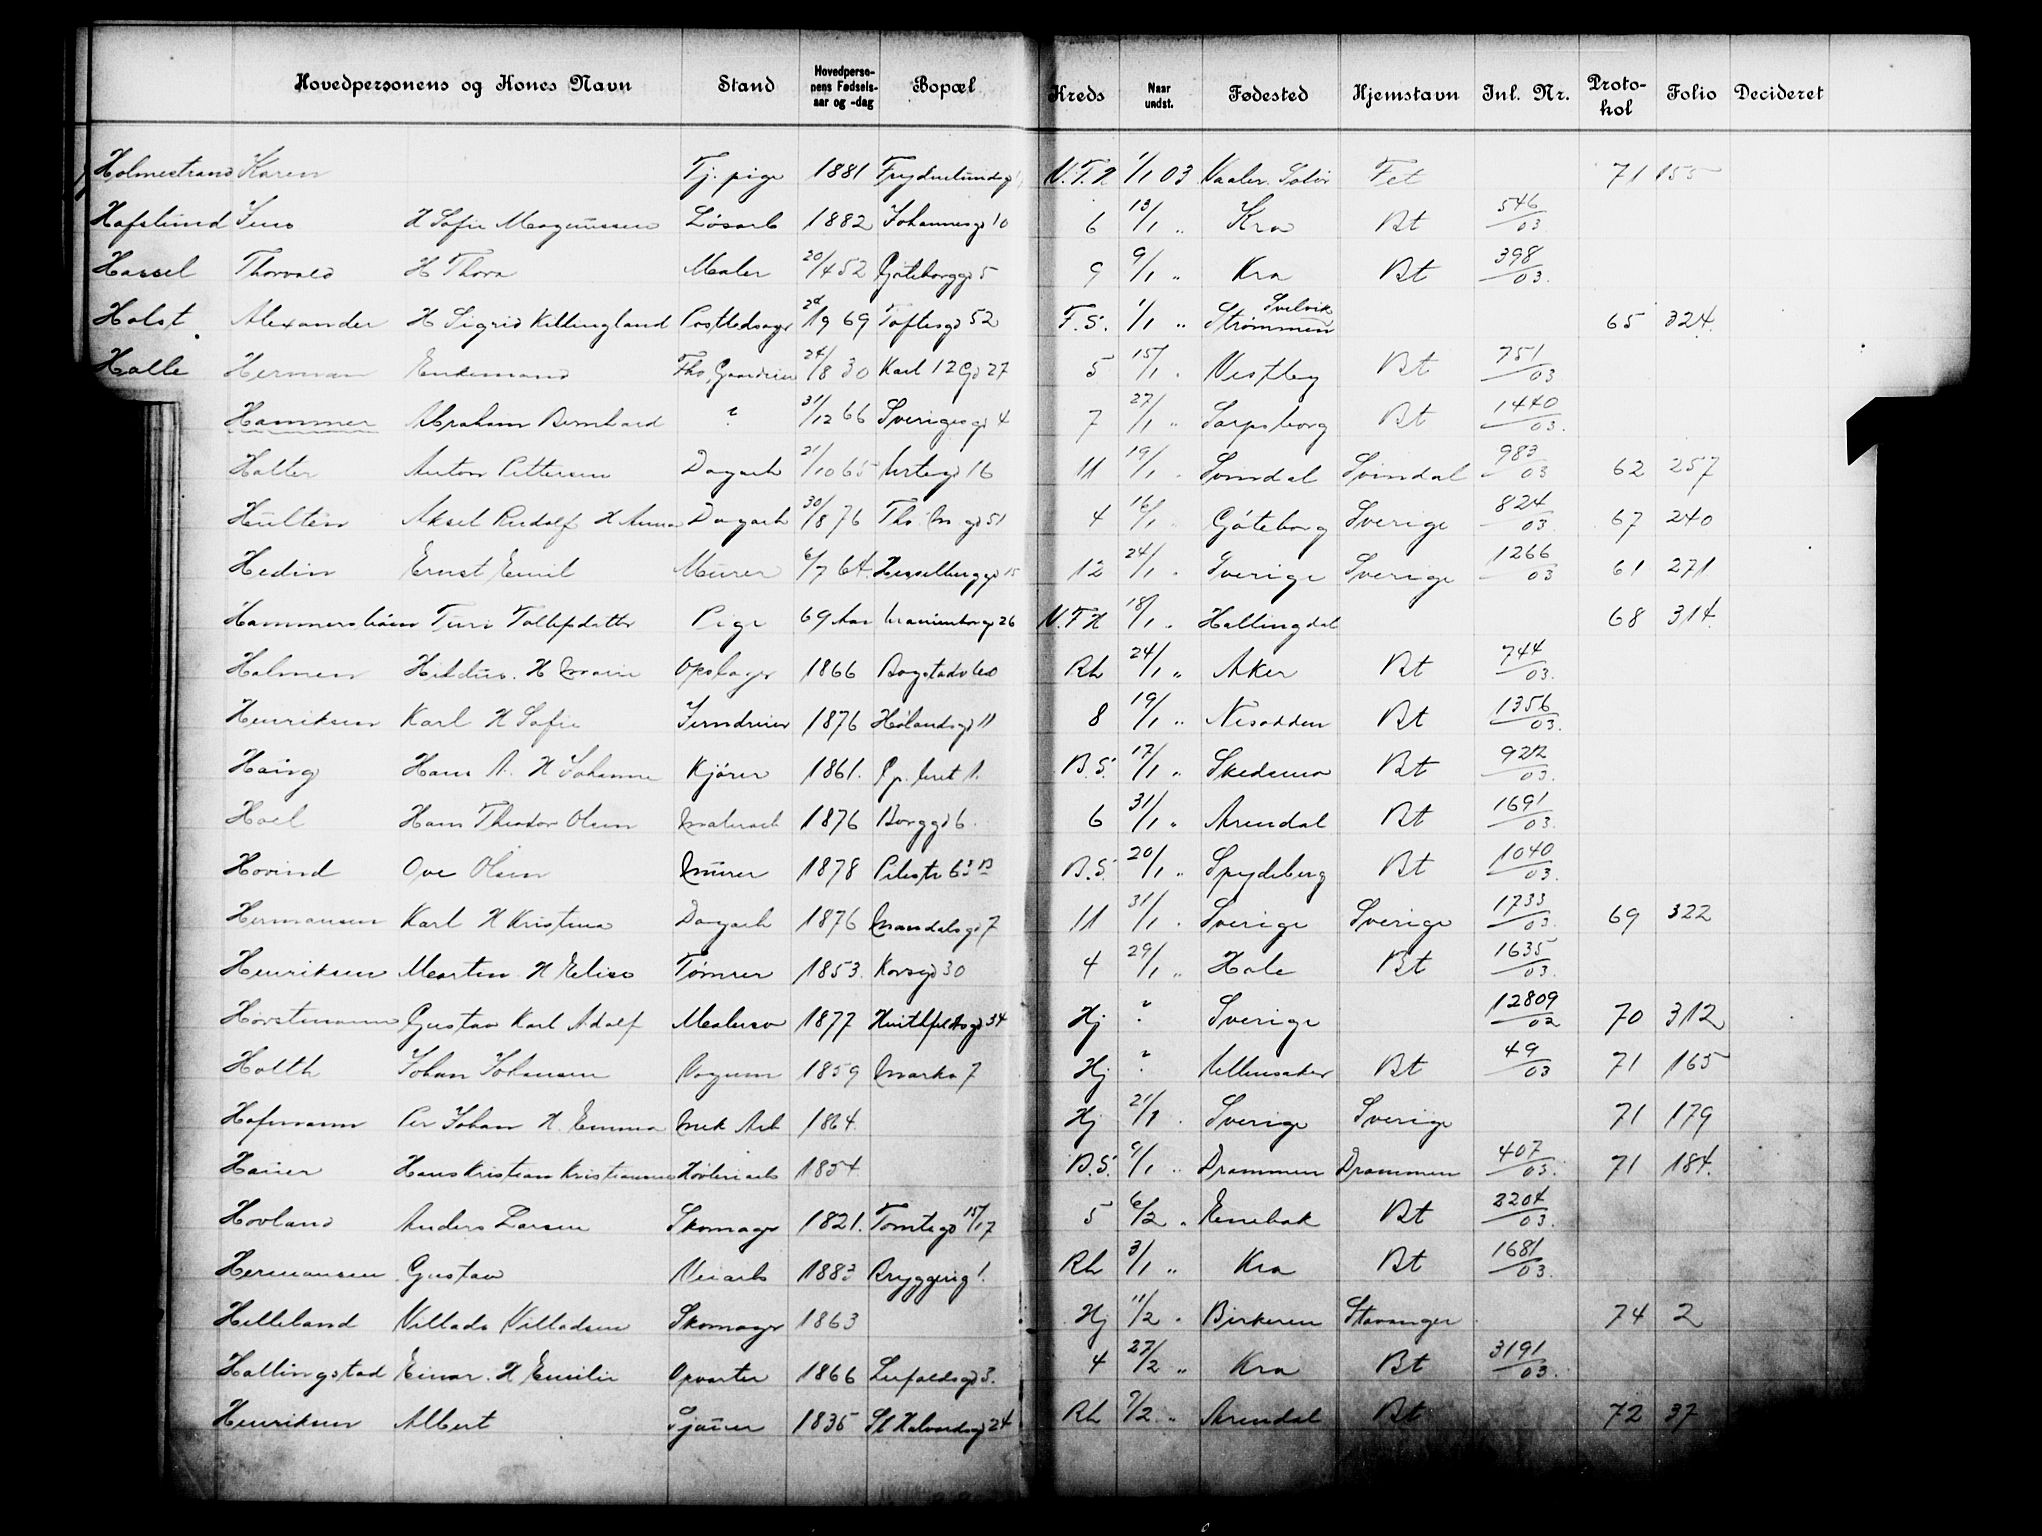 Hovedpersonens og Kones Navn Stand Hovedpersonens Fødselsaar og -dag Bopæl Kreds Naar undst. Fødested Hjemstavn Inl. Nr. Protokol Folio Decideret
Holmestrand Karen Tj. pige 1881 N.T.H 1/1 03 Vaaler Solør Fet 71 155
Hafslund Jens H Sofie Magnussen Løsarb 1882 Johannesgd 10 6 13/1 „ Kra Bt 546/03
Hassel Thorvald H Thora Maler 20/4 52 Gøteborggd 5 9 9/1 „ Kra Bt 398/03
Holst Alexander H Sigrid Killingland Postledsager 9 69 Toftesgd 52 F.S. 1/1 „ Svelvik Strømmen 65 324.
Halle Herman Enkemand Fhv. Gaardeier 24/8 30 Karl 12 Gd 27 5 15/1 . Vestby Bt 751/03
Hammer Abraham Bernhard ? 31/12 66 Sverigesgd 4 7 27/1 „ Sarpsborg Bt 1440/03.
Halter Anton Pettersen Dagarb 21/10 65 Urtegd 16 11 19/1 . Svindal Svindal 983/03 62 257
Hultén Aksel Rudolf H Anna Dagarb 30/8 76 Ths. M gd 51 4 16/1 „ Gøteborg Sverige 824/03. 67 240
Hedin Ernst Emil Murer 6/7 64. Hesselberggd 15 12 24/1 . Sverige Sverige 1266/03 61 271
Hammersbøen Turi Tollefsdatter Pige 69 Aar Uranienborgd 26 N.T.H 18/1 „ Hallingdal 68 314.
Halmen H Marie Opsager 1866 Bogstadv Rh 24/1 „ Aker Bt 744/03.
Henriksen Karl H Sofie Jerndreier 1876 Hølandsgd 11 8 19/1 „ Nesodden Bt 1356/03.
Haug Hans A. H Johanne Kjører 1861. B.S. 17/1 „ Skedsmo Bt 922/03.
Hoel Hans Theodor Olsen Malerarb 1876 Borggd 6. 6 31/1 „ Arendal Bt 1691/03.
Hovind Ove Olsen Murer 1878 Pilestr 63 B B.S. 20/1 „ Spydeberg Bt 1040/03.
Hermansen Karl H Kristina Dagarb 1876 Mandalsgd 7 11 31/1 . Sverige Sverige 1733/03. 69 322
Henriksen Martin H Elise Tømrer 1853. Korsgd 30 4 29/1 „ Hole Bt 1635/03.
Horstmann Gustav Karl Adolf Malersv 1877 Huitfeldtsgd 34 Hj ? Sverige 12809/02 70 312
Holth Johan Johansen Vognm 1859 Markv 7 Hj ? Ullensaker Bt 49/03 71 165
Hofmann Per Johan H. Emma Mek Arb 1864. Hj 21/1 . Sverige Sverige 71 179
Hauer Hans Kristian Kristiansen Høvleriarb 1854. B.S. 9/1 „ Drammen Drammen 407/03. 71 184.
Hovland Anders Larsen Skomager 1821. Tomtegd 15/17 5 6/2 „ Enebak Bt 2204/03.
Hermansen Gustav Veiarb 1883 Bryggerig 1. Rh 3/1 „ Kra Bt 1681/03.
Helleland Villads Villadsen Skomager 1863 Hj 11/2 . Birkeren Stavanger 74 2
Hallingstad Einar. H Emilie Opvarter 1866 Leufoldsgd 3. 4 27/2 „ Kra Bt 3191/03.
Henriksen Albert 1835 St Halvardsgd 24 Rh 7/2 „ Arendal Bt 72 37